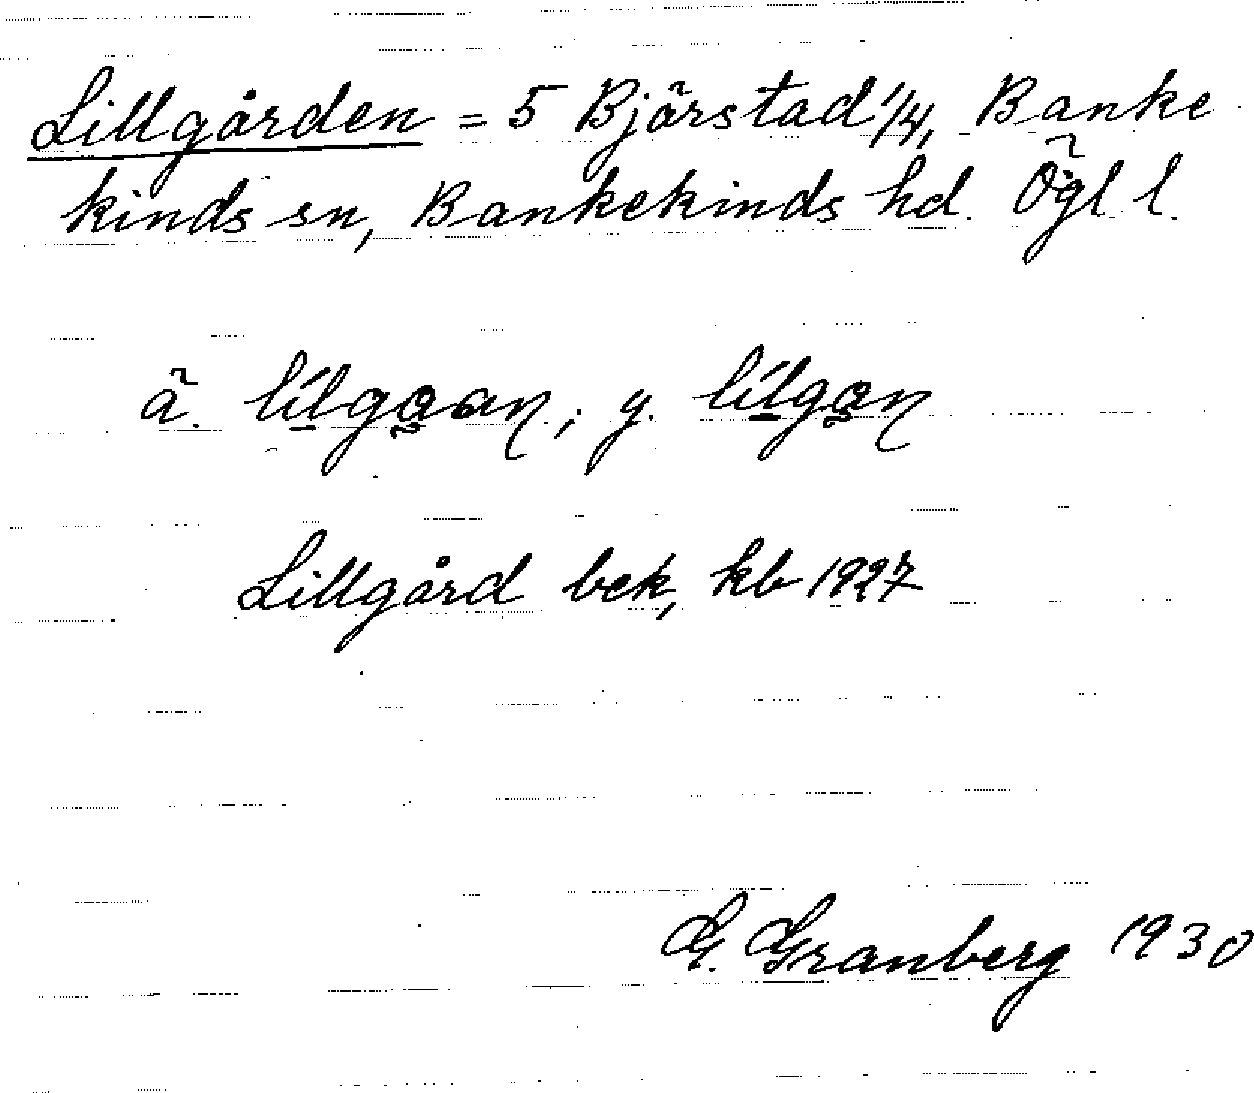 Lillgården = 5 Björstad 1/4, Banke
kinds sn, Bankekinds hd. Ögl l.
ä. lilgaan; y. lilgan
Lillgård bek, kb 1927
G. Granberg 1930